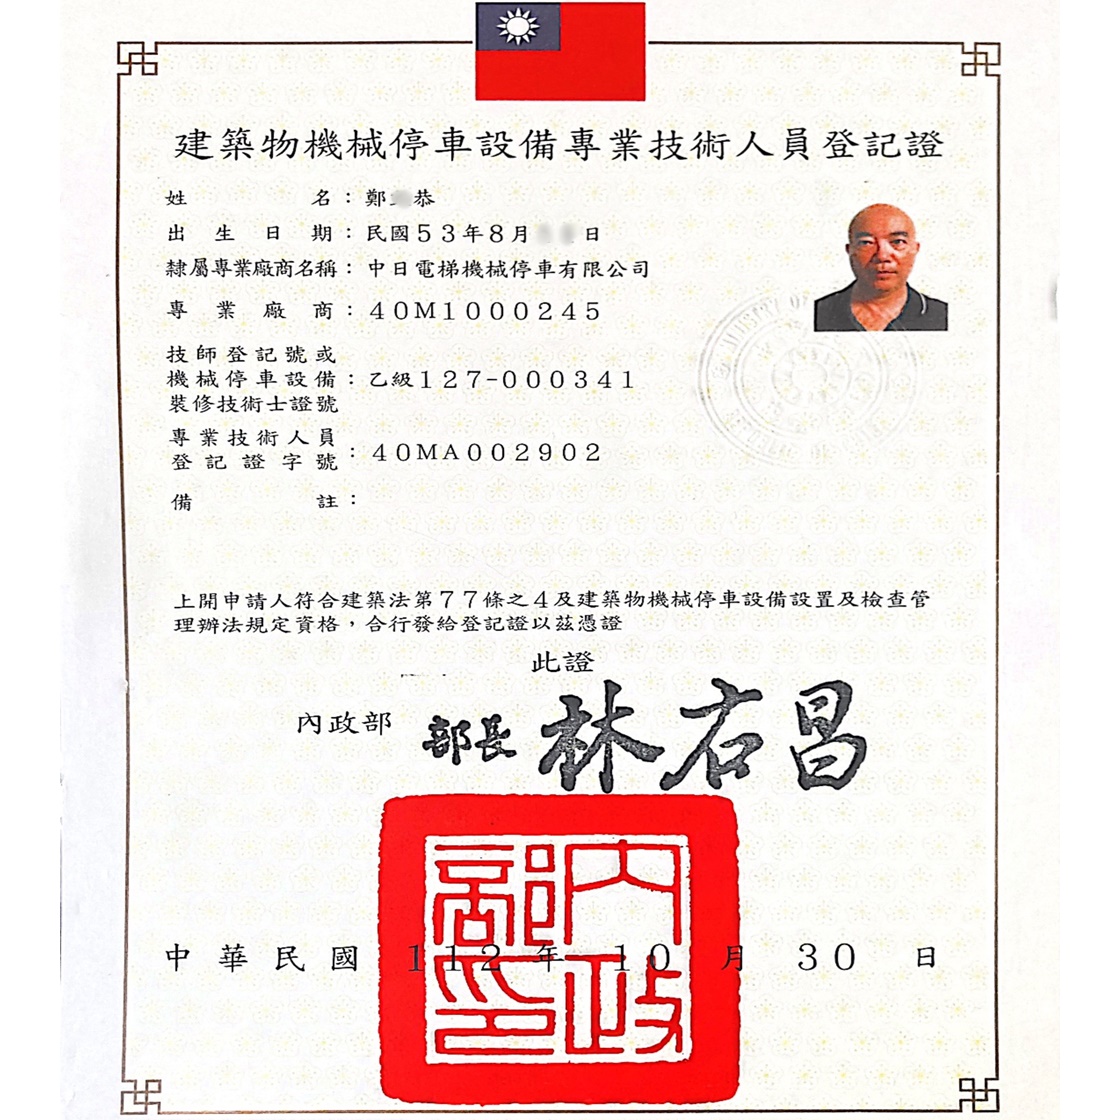 建築物機械停車設備專業技術人員登記證
姓名：鄭恭
出生日期：民國53年8月日
隸屬專業廠商名稱：中日電梯機械停車有限公司
專業廠商：40M1000245
技師登記號或
機械停車設備：乙級127-000341
裝修技術士證號
專業技術人員
登記證字號：40MA002902
備註：
上開申請人符合建築法第77條之4及建築物機械停車設備設置及檢查管
理辦法規定資格，合行發給登記證以茲憑證
此證
內政部 部長 林右昌
內政部印
中華民國112年10月30日